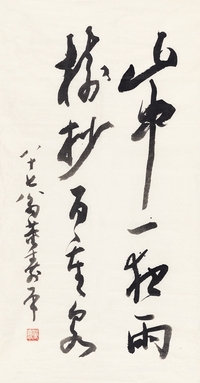 山中一夜雨
樹杪百重泉
八十七翁董寿平